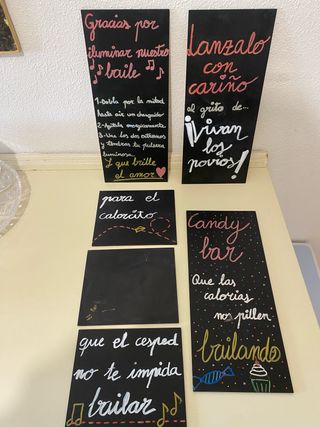 Gracias por
iluminar nuestro
baile
1-Dobla por la mitad
hasta oir un chasquido
2-Agitala enérgicamente
3-Une los dos extremos
y tendras tu pulsera
luminosa.
Y que brille
el amor
Lanzalo
con
cariño
al grito de...
¡Vivan
los
novios!
para el
calorcito
que el cesped
no te impida
bailar
Candy
bar
Que las
calorias
nos pillen
bailando